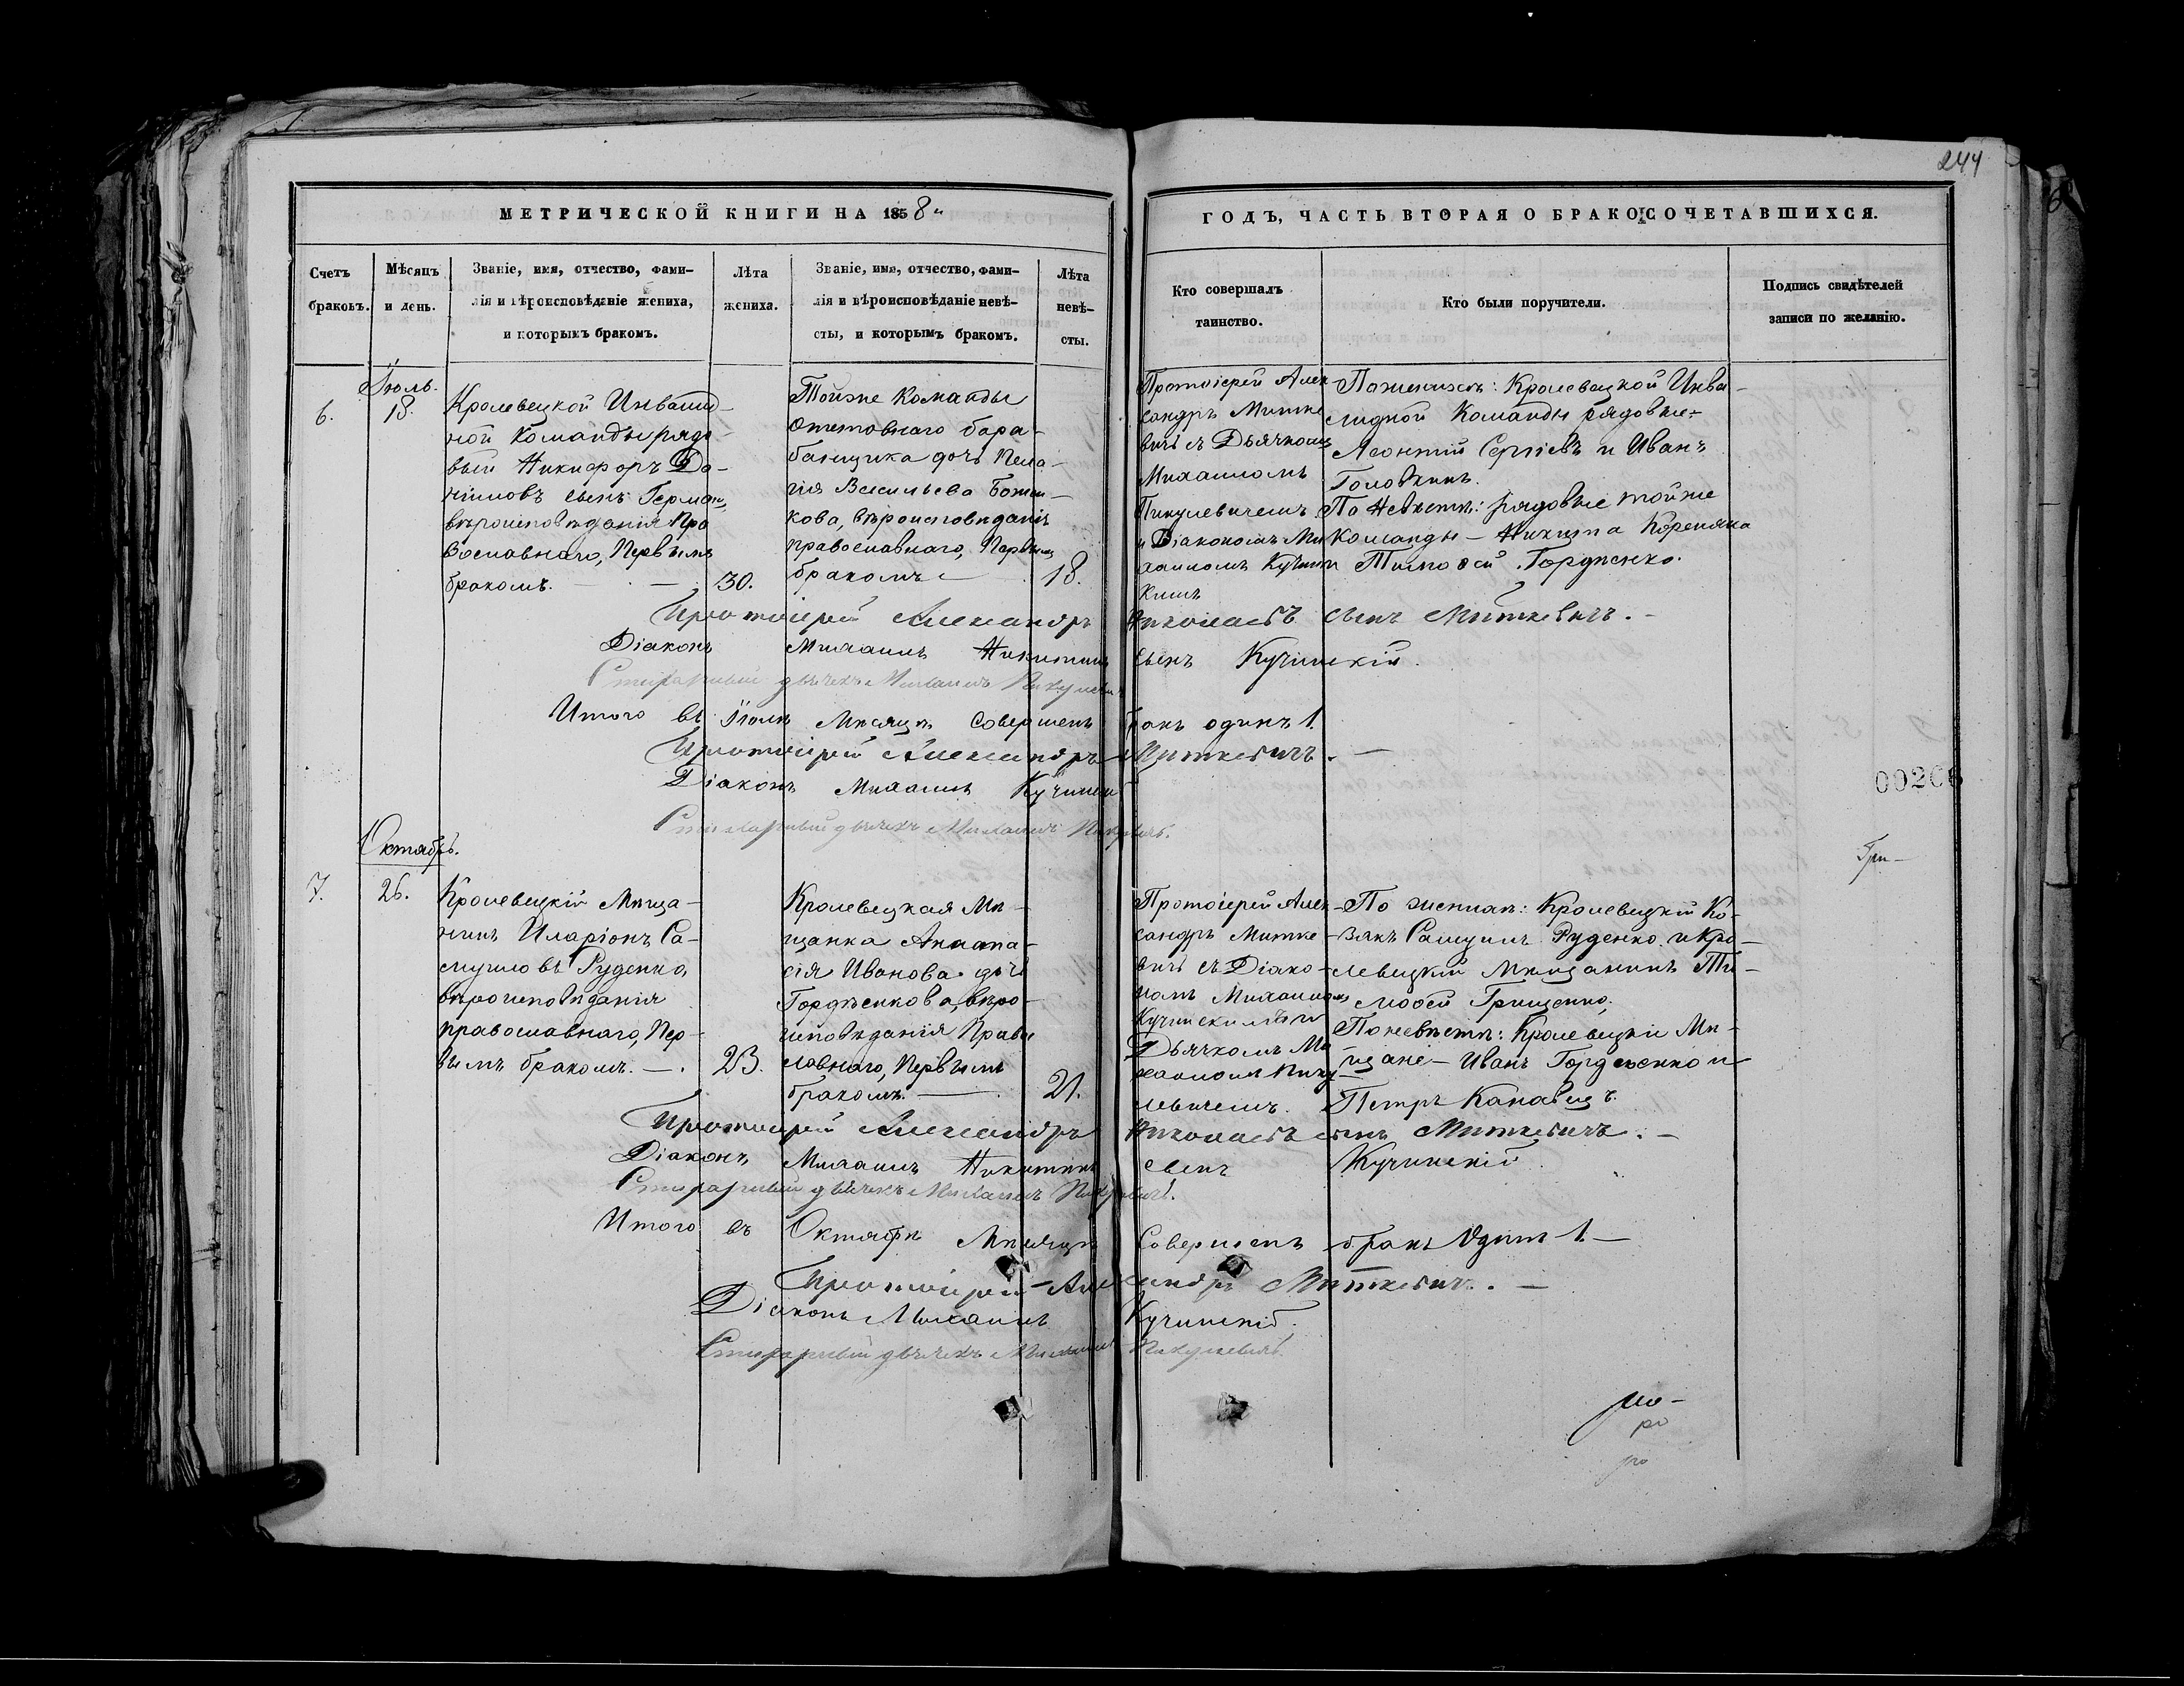 244
МЕТРИЧЕСКОЙ КНИГИ НА 1858
ГОДЪ, ЧАСТЬ ВТОРАЯ О БРАКОСОЧЕТАВШИХСЯ.
Счетъ
браковъ.
Мѣсяцъ
и день.
Званіе, имя, отчество, фами-
лія и вѣроисповѣданіе жениха,
и которымъ бракомъ.
Лѣта
жениха.
Званіе, имя, отчество, фами-
лія и вѣроисповѣданіе невѣ-
сты, и которымъ бракомъ.
Лѣта
невѣ-
сты.
Кто совершалъ
таинство.
Кто были поручители.
Подпись свидѣтелей
записи по желанію.
6.
Іюль.
18.
Кролевецкой Инвалид-
ной Команды рядо-
вый Никифоръ Да-
ниловъ сынъ Герман,
вѣроисповѣданія Пра
вославнаго, Первымъ
бракомъ. —
30.
Тойже Команды
отставнаго бара-
банщика дочь Пела-
гія Васильева
кова, вѣроисповѣданія
православнаго, Первымъ
бракомъ —
18.
Протоіерей Алек-
сандръ Митке
вичъ съ Дьячкомъ
Михаиломъ
Пикулевичемъ
и Діакономъ Ми
хаиломъ Кучин
скимъ
По женихѣ: Кролевецкой Инва-
лидной Команды рядовые-
Леонтій Сергіевъ и Иванъ
Головкинъ.
По Невѣстѣ: рядовые тойже
Команды — Никита Кореняка
Тимоѳей Гордѣенко.
Протоіерей Александръ Николаевъ сынъ Миткевичъ. —
Діаконъ Михаилъ Никитинъ сынъ Кучинскій.
дьячекъ Михаилъ Пикулевичъ
Итого въ Іюлѣ Мѣсяцѣ совершенъ бракъ одинъ 1.
Протоіерей Александръ Миткевичъ. —
Діаконъ Михаилъ Кучинскій
дьячекъ Михаилъ Пикулевичъ.
00206
Октябрь.
7.
26.
Кролевецкій Мѣща-
нинъ Иларіонъ Са-
муиловъ Руденко,
вѣроисповѣданія
православнаго, Пер-
вымъ бракомъ. —.
23.
Кролевецкая Мѣ-
щанка Анаста-
сія Иванова дочь
Гордѣенкова, вѣро-
исповѣданія Право
славнаго, Первымъ
бракомъ. —
21.
Протоіерей Алек-
сандръ Митке-
вичъ съ Діако-
номъ Михаиломъ
Кучинскимъ и
Дьячкомъ Ми
хаиломъ Пику-
левичемъ.
По женихѣ: Кролевецкій Ко-
закъ Самуилъ Руденко и Кро-
левецкій Мѣщанинъ Ти-
моѳей Грищенко,
По невѣстѣ: Кролевецкіе Мѣ-
щане — Иванъ Гордѣенко и
Петръ Канавецъ.
Гри-
Протоіерей Александръ Николаевъ сынъ Миткевичъ. —
Діаконъ Михаилъ Никитинъ сынъ Кучинскій.
дьячекъ Михаилъ Пикулевичъ.
Итого въ Октябрѣ Мѣсяцѣ Совершенъ бракъ Одинъ 1. —
Протоіерей Александръ Миткевичъ. —
Діаконъ Михаилъ Кучинскій.
дьячекъ Михаилъ Пикулевичъ.